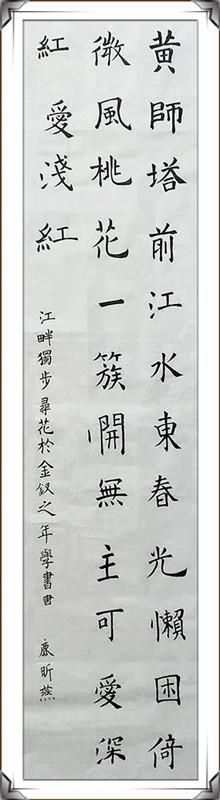 黄師塔前江水東春光懶困倚
微風桃花一簇開無主可愛深
紅愛淺紅
江畔獨步尋花於金釵之年學書書 康昕燕